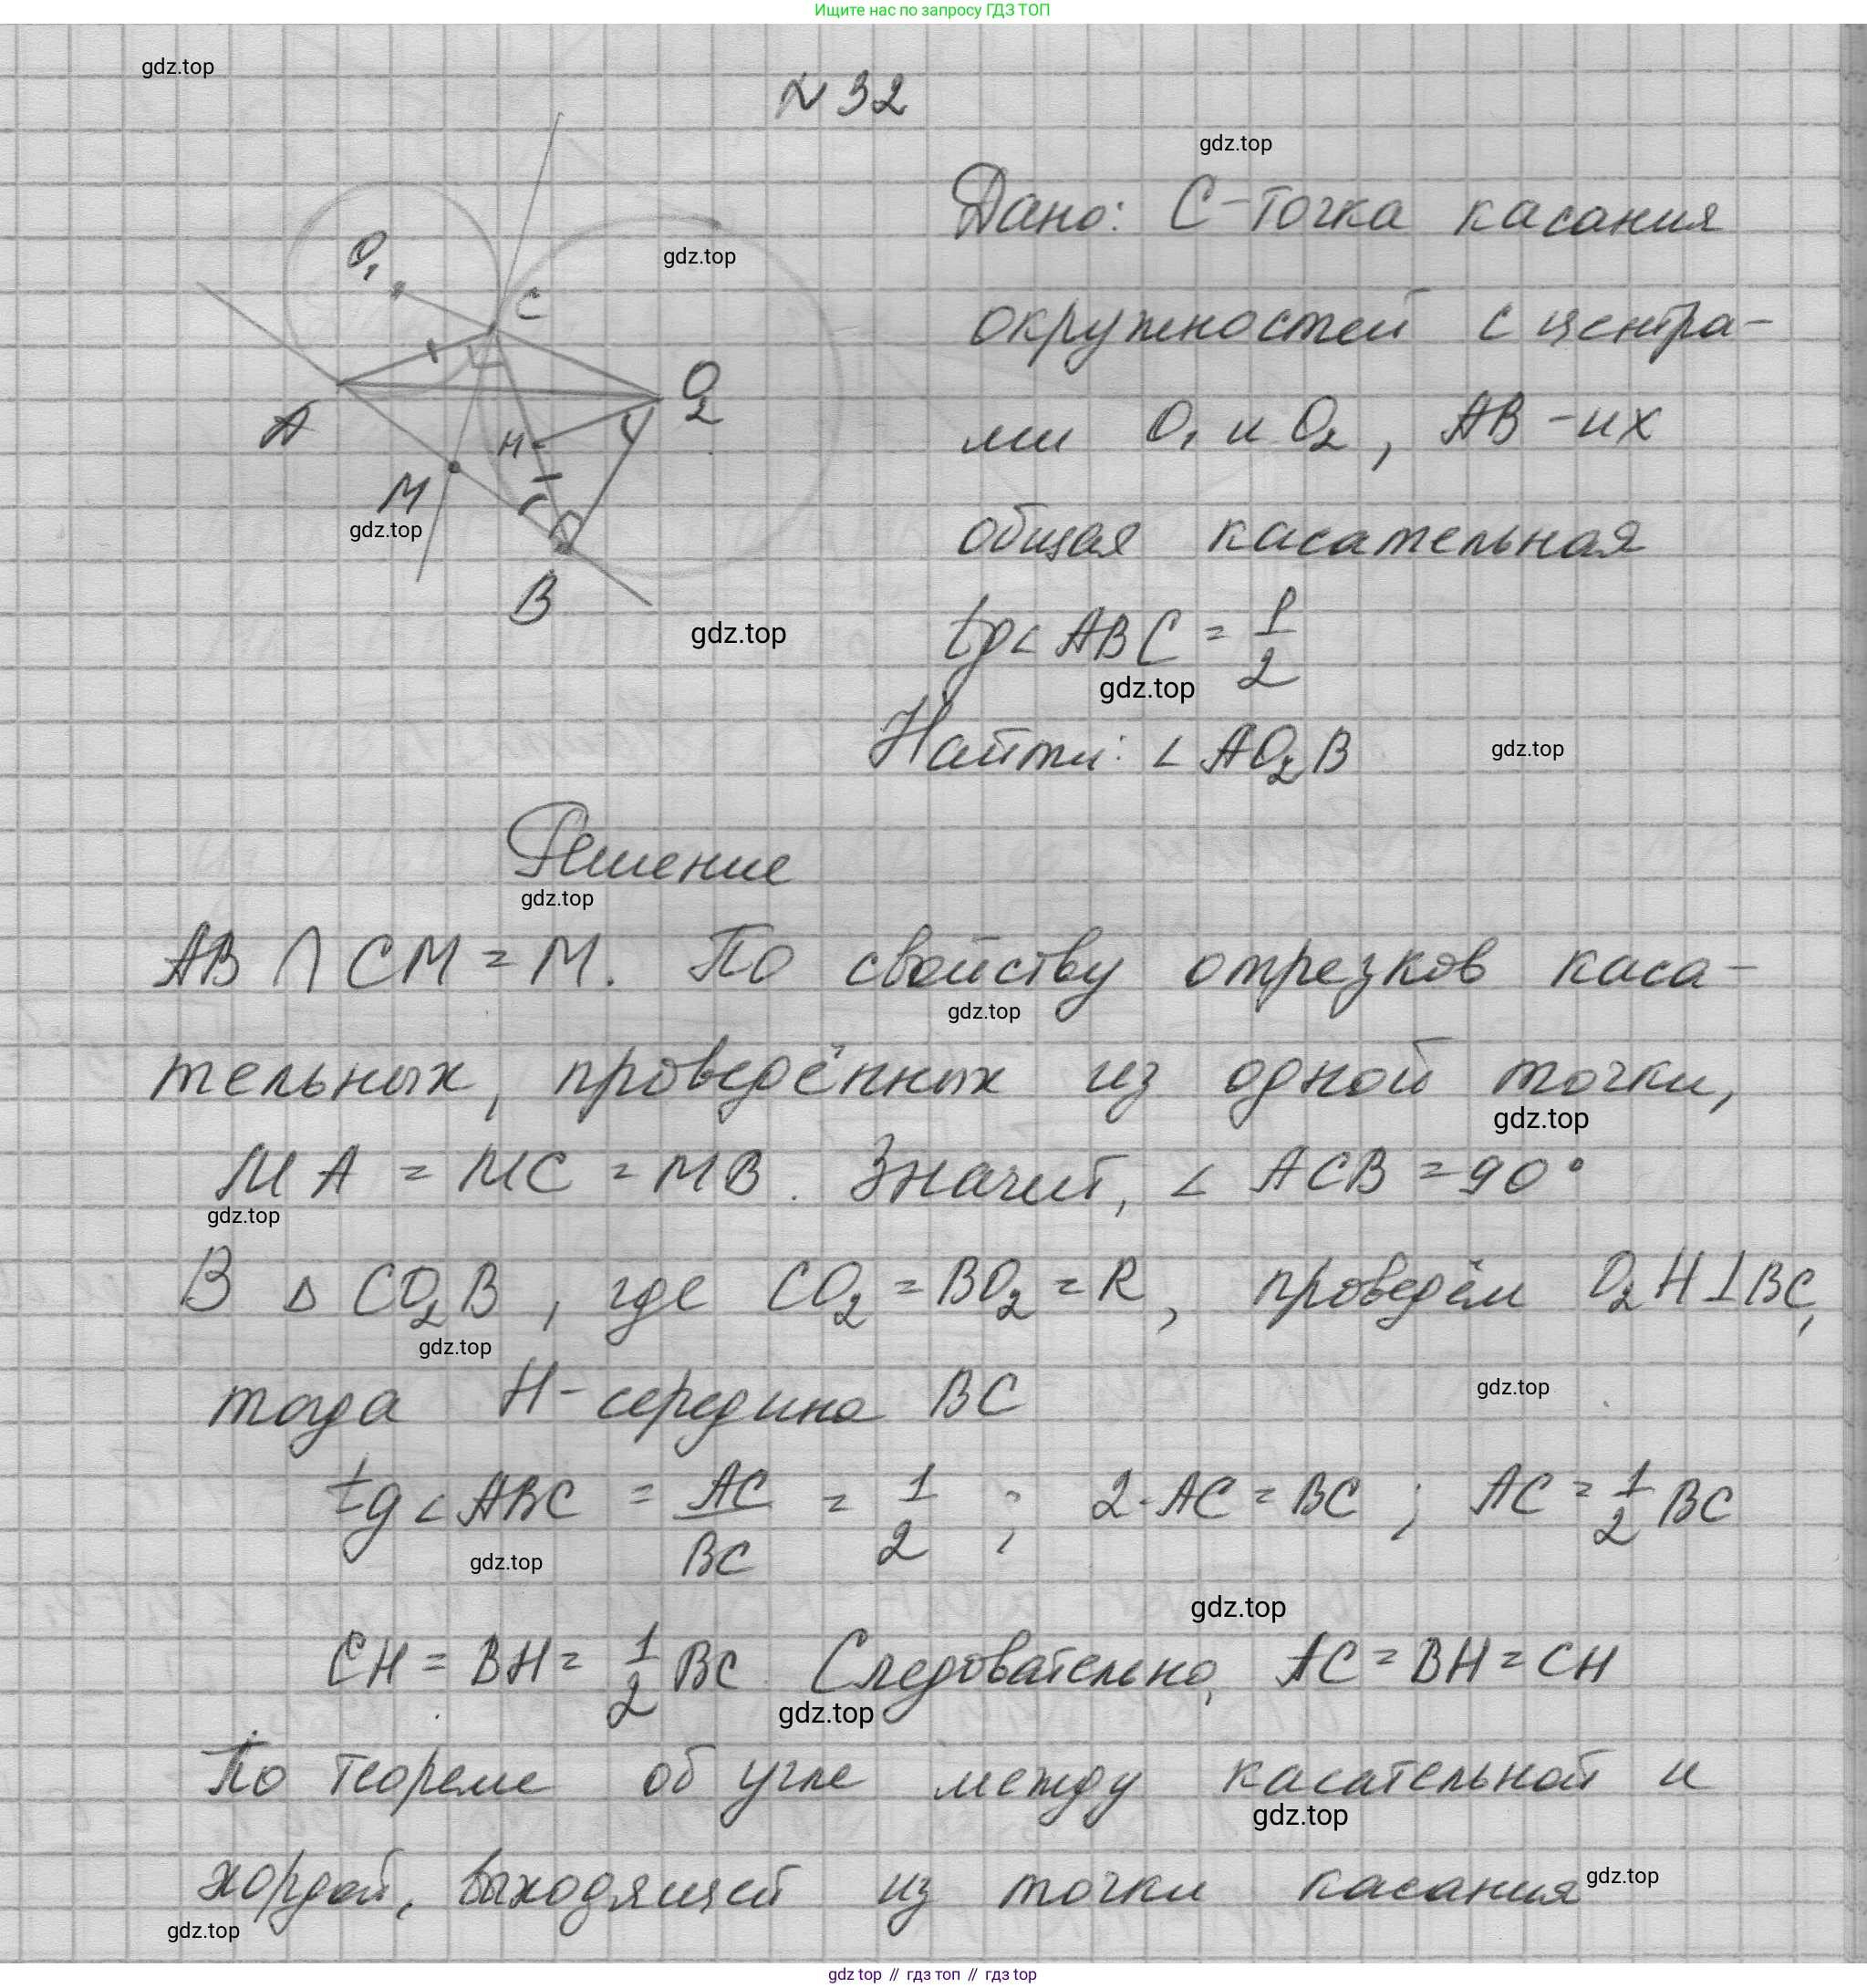 Ищите нас по запросу ГДЗ ТОП
gdz.top
N 32
gdz.top
Дано: C - точка касания
gdz.top
O₁
C
окружностей с центра-
O₂
A
H
ми O₁ и O₂, AB - их
M
gdz.top
общая касательная
B
gdz.top
tg∠ABC = 1/2
gdz.top
Найти: ∠AO₂B
gdz.top
Решение
gdz.top
AB ∩ CM = M. По свойству отрезков каса-
gdz.top
тельных, проведённых из одной точки,
gdz.top
MA = MC = MB. Значит, ∠ ACB = 90°
gdz.top
В △ CO₂B, где CO₂ = BO₂ = R, проведём O₂H⊥BC,
gdz.top
тогда H - середина BC
gdz.top
tg∠ABC = AC/BC = 1/2; 2·AC = BC; AC = 1/2 BC
gdz.top
gdz.top
CH = BH = 1/2 BC. Следовательно, AC = BH = CH
gdz.top
По теореме об угле между касательной и
gdz.top
хордой, выходящей из точки касания
gdz.top
gdz.top
gdz top // гдз топ // гдз top